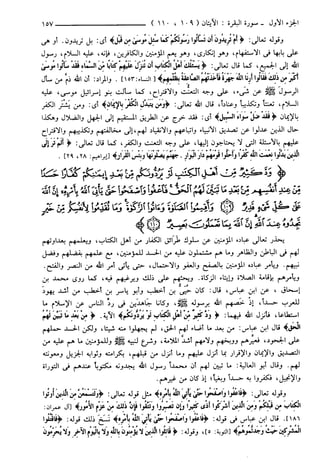 الجزء الأول ـ سورة البقرة: الآيتان (١٠٩، ١١٠) ١٥٧
وقوله تعالى: ﴿أَمْ تُرِيدُونَ أَن تَسْأَلُوا رَسُولَكُمْ كَمَا سُئِلَ مُوسَىٰ مِن قَبْلُ﴾ أي: بل تريدون. أو هي
على بابها في الاستفهام، وهو إنكاري، وهو يعم المؤمنين والكافرين، فإنه، عليه السلام، رسول
الله إلى الجميع، كما قال تعالى: ﴿يَسْأَلُكَ أَهْلُ الْكِتَابِ أَن تُنَزِّلَ عَلَيْهِمْ كِتَابًا مِّنَ السَّمَاءِ فَقَدْ سَأَلُوا مُوسَىٰ
أَكْبَرَ مِن ذَٰلِكَ فَقَالُوا أَرِنَا اللَّهَ جَهْرَةً فَأَخَذَتْهُمُ الصَّاعِقَةُ بِظُلْمِهِمْ﴾ [النساء: ١٥٣]. والمراد: أن الله ذم من سأل
الرسول ﷺ عن شيء، على وجه التعنت والاقتراح، كما سألت بنو إسرائيل موسى، عليه
السلام، تعنتاً وتكذيباً وعناداً، قال الله تعالى: ﴿وَمَن يَتَبَدَّلِ الْكُفْرَ بِالْإِيمَانِ﴾ أي: ومن يشتر الكفر
بالإيمان ﴿فَقَدْ ضَلَّ سَوَاءَ السَّبِيلِ﴾ أي: فقد خرج عن الطريق المستقيم إلى الجهل والضلال وهكذا
حال الذين عدلوا عن تصديق الأنبياء واتباعهم والانقياد لهم، إلى مخالفتهم وتكذيبهم والاقتراح
عليهم بالأسئلة التي لا يحتاجون إليها، على وجه التعنت والكفر، كما قال تعالى: ﴿أَلَمْ تَرَ إِلَى
الَّذِينَ بَدَّلُوا نِعْمَتَ اللَّهِ كُفْرًا وَأَحَلُّوا قَوْمَهُمْ دَارَ الْبَوَارِ جَهَنَّمَ يَصْلَوْنَهَا وَبِئْسَ الْقَرَارُ﴾ [إبراهيم: ٢٨، ٢٩].
﴿وَدَّ كَثِيرٌ مِّنْ أَهْلِ الْكِتَابِ لَوْ يَرُدُّونَكُم مِّن بَعْدِ إِيمَانِكُمْ كُفَّارًا حَسَدًا
مِّنْ عِندِ أَنفُسِهِم مِّن بَعْدِ مَا تَبَيَّنَ لَهُمُ الْحَقُّ فَاعْفُوا وَاصْفَحُوا حَتَّىٰ يَأْتِيَ اللَّهُ بِأَمْرِهِ إِنَّ اللَّهَ عَلَىٰ
كُلِّ شَيْءٍ قَدِيرٌ ﴿١٠٩﴾ وَأَقِيمُوا الصَّلَاةَ وَآتُوا الزَّكَاةَ وَمَا تُقَدِّمُوا لِأَنفُسِكُم مِّنْ خَيْرٍ
تَجِدُوهُ عِندَ اللَّهِ إِنَّ اللَّهَ بِمَا تَعْمَلُونَ بَصِيرٌ ﴿١١٠﴾﴾
يحذر تعالى عباده المؤمنين عن سلوك طرائق الكفار من أهل الكتاب، ويعلمهم بعداوتهم
لهم في الباطن والظاهر وما هم مشتملون عليه من الحسد للمؤمنين، مع علمهم بفضلهم وفضل
نبيهم. ويأمر عباده المؤمنين بالصفح والعفو والاحتمال، حتى يأتي أمر الله من النصر والفتح.
ويأمرهم بإقامة الصلاة وإيتاء الزكاة. ويحثهم على ذلك ويرغبهم فيه، كما روى محمد بن
إسحاق، عن ابن عباس، قال: كان حُيَيّ بن أخطب وأبو ياسر بن أخطب من أشد يهود
للعرب حسداً، إذ خصهم الله برسوله ﷺ، وكانا جاهدَين في رد الناس عن الإسلام ما
استطاعا، فأنزل الله فيهما: ﴿وَدَّ كَثِيرٌ مِّنْ أَهْلِ الْكِتَابِ لَوْ يَرُدُّونَكُم﴾ الآية. ﴿مِّن بَعْدِ مَا تَبَيَّنَ لَهُمُ
الْحَقُّ﴾ قال ابن عباس: من بعد ما أضاء لهم الحق، لم يجهلوا منه شيئاً، ولكن الحسد حملهم
على الجحود، فعيرهم ووبخهم ولامهم أشد الملامة، وشرع لنبيه ﷺ وللمؤمنين ما هم عليه من
التصديق والإيمان والإقرار بما أنزل عليهم وما أنزل من قبلهم، بكرامته وثوابه الجزيل ومعونته
لهم. وقال أبو العالية: ما تبين لهم أن محمداً رسول الله يجدونه مكتوباً عندهم في التوراة
والإنجيل، فكفروا به حسداً وبغياً؛ إذ كان من غيرهم.
وقوله تعالى: ﴿فَاعْفُوا وَاصْفَحُوا حَتَّىٰ يَأْتِيَ اللَّهُ بِأَمْرِهِ﴾ مثل قوله تعالى: ﴿وَلَتَسْمَعُنَّ مِنَ الَّذِينَ أُوتُوا
الْكِتَابَ مِن قَبْلِكُمْ وَمِنَ الَّذِينَ أَشْرَكُوا أَذًى كَثِيرًا وَإِن تَصْبِرُوا وَتَتَّقُوا فَإِنَّ ذَٰلِكَ مِنْ عَزْمِ الْأُمُورِ﴾ [آل عمران:
١٨٦]. قال ابن عباس في قوله: ﴿فَاعْفُوا وَاصْفَحُوا حَتَّىٰ يَأْتِيَ اللَّهُ بِأَمْرِهِ﴾ نسخ ذلك قوله: ﴿فَاقْتُلُوا
الْمُشْرِكِينَ حَيْثُ وَجَدتُّمُوهُمْ﴾ [التوبة: ٥]، وقوله: ﴿قَاتِلُوا الَّذِينَ لَا يُؤْمِنُونَ بِاللَّهِ وَلَا بِالْيَوْمِ الْآخِرِ وَلَا يُحَرِّمُونَ